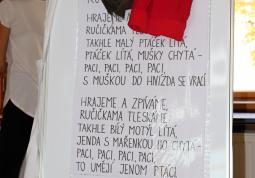 HRAJEME A
RUČIČKAMA TLESKÁ
TAKHLE MALÝ PTÁČEK LÍTÁ,
PTÁČEK LÍTÁ, MUŠKY CHYTÁ -
PACI, PACI, PACI, PACI,
S MUŠKOU DO HNÍZDA SE VRACÍ
HRAJEME A ZPÍVÁME,
RUČIČKAMA TLESKÁME,
TAKHLE BÍLÝ MOTÝL LÍTÁ,
JENDA S MAŘENKOU HO CHYTÁ -
PACI, PACI, PACI, PACI,
TO UMĚJÍ JENOM PTÁCI